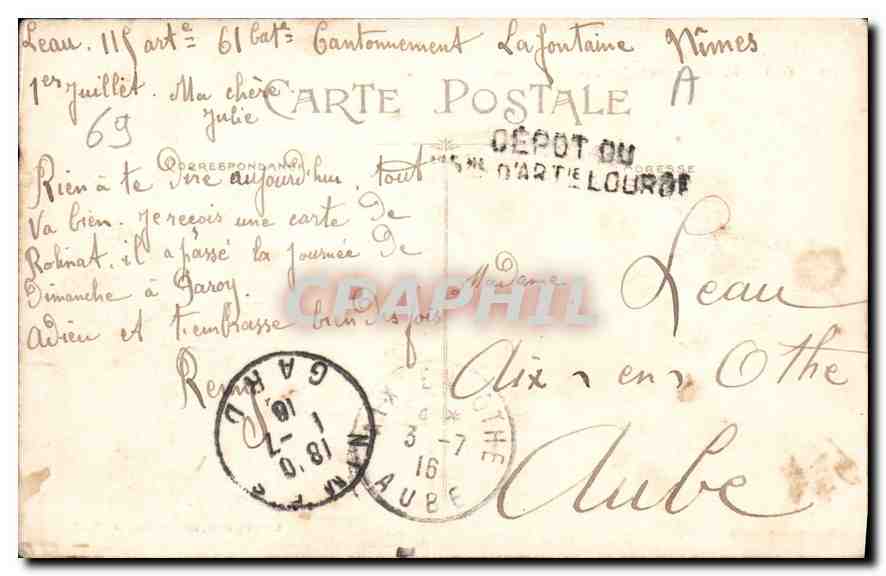 Leau. 115 arte 61 bate Cantonnement Lafontaine Nîmes
1er Juillet. Ma chère
Julie
69
A
CARTE POSTALE
CORRESPONDANCE
ADRESSE
DÉPOT DU
D'ARTIE LOURDE
Rien à te dire aujourd'hui, tout
va bien. Je reçois une carte de
il a passé la journée de
Dimanche à
Adieu et t'embrasse bien des fois
Remi
Madame
Leau
Aix en Othe
Aube
CPAPHIL
NIMES
18 30
1 -7
16
GARD
OTHE
3 -7
16
AUBE